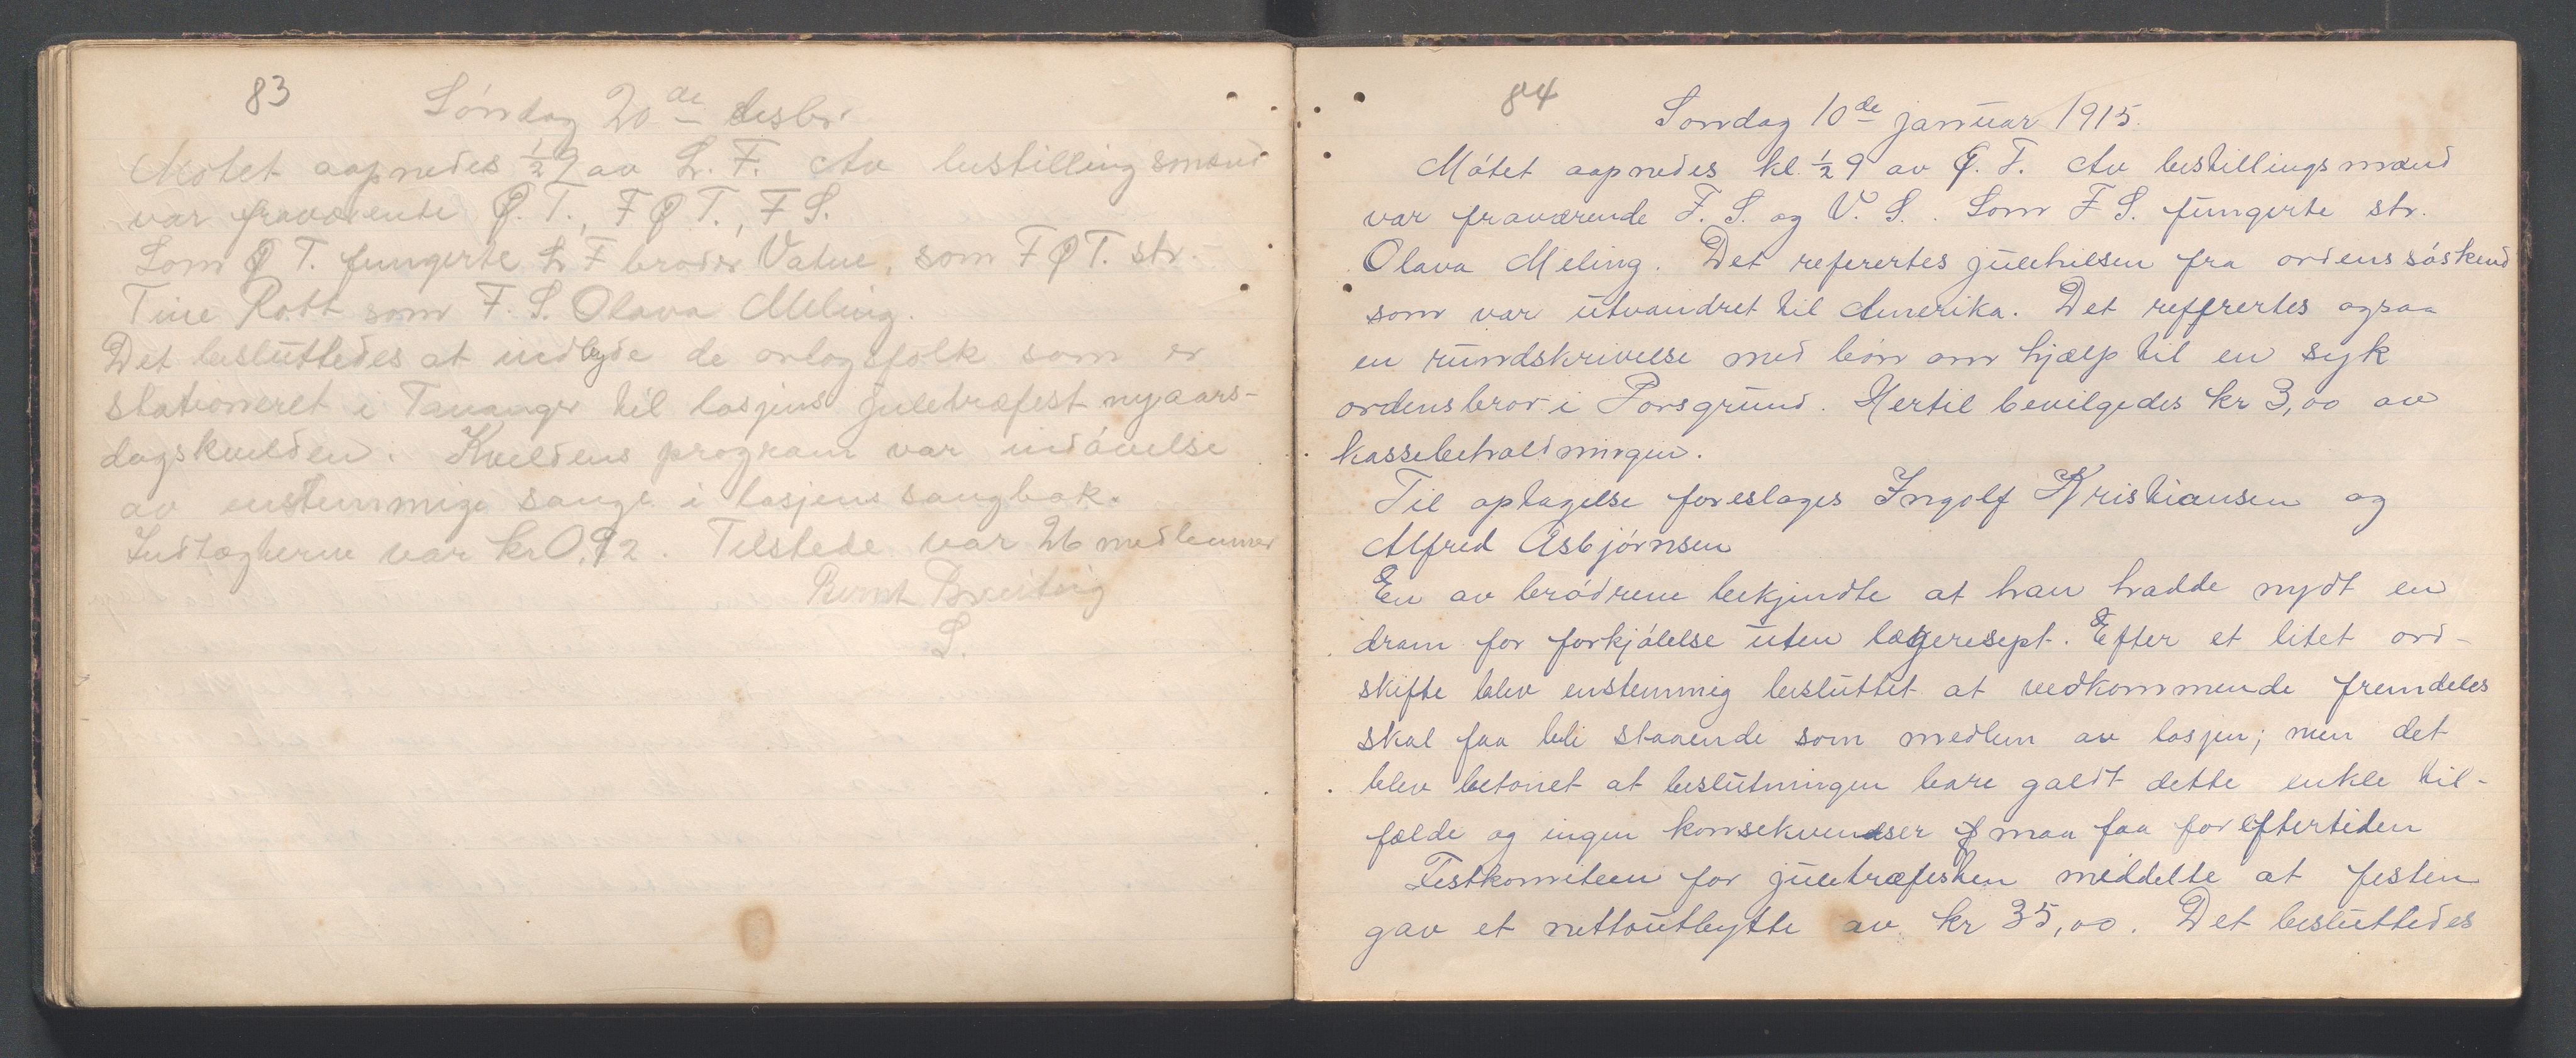 83
Søndag 20de desbr.
Møtet aapnedes ½9 av L. F. Av bestillingsmænd
var fraværende Ø. T., F Ø T., F S.
Som Ø T. fungerte L F broder Vatne, som F Ø T. str.
Tine Rott som F. S. Olava Meling.
Det besluttedes at indbyde de orlogsfolk som er
stationeret i Tananger til losjens juletræfest nyaars-
dagskvelden. Kveldens program var indøvelse
av enstemmige sange i losjens sangbok.
Indtægterne var kr 0.92. Tilstede var 26 medlemmer
Bernt Breiting
S.
84
Søndag 10de januar 1915.
Møtet aapnedes kl. ½9 av Ø. T. Av bestillingsmænd
var fraværende F. S. og V. S. Som F S. fungerte str.
Olava Meling. Det referertes julehilsen fra ordenssøskend
som var utvandret til Amerika. Det reffrertes ogsaa
en rundskrivelse med bøn om hjælp til en syk
ordensbror i Porsgrund. Hertil bevilgedes kr 3,00 av
kassebeholdningen.
Til optagelse foreslages Ingolf Kristiansen og
Alfred Asbjørnsen
En av brødrene bekjendte at han hadde nydt en
dram for forkjølelse uten lægeresept. Efter et litet ord-
skifte blev enstemmig besluttet at vedkommende fremdeles
skal faa bli staaende som medlem av losjen; men det
blev betonet at beslutningen bare galdt dette enkle til-
fælde og ingen konsekvenser maa faa for eftertiden
Festkomiteen for juletræfesten meddelte at festen
gav et nettoutbytte av kr 35,00. Det besluttedes